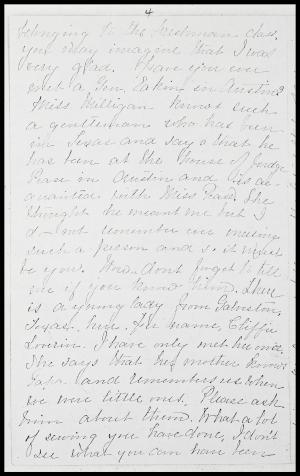 4
belonging to the Freshman class,
you may imagine that I was
very glad. Have you ever
met a Gen. Eakin in Austin?
Miss Milligan knows such
a gentleman who has been
in Texas and says that he
has been at the House of Judge
Pease in Austin and is ac-
quainted with Miss Pease. She
thought he meant me but I
do not remember ever meeting
such a person and so it must
be you. Now don't forget to tell
me if you know him. There
is a young lady from Galveston,
Texas, here. Her name, Cliffie
I have only met her once.
She says that her mother knows
Papa and remembers us when
we were little ones. Please ask
him about them. What a lot
of sewing you have done, I don't
see what you can have been